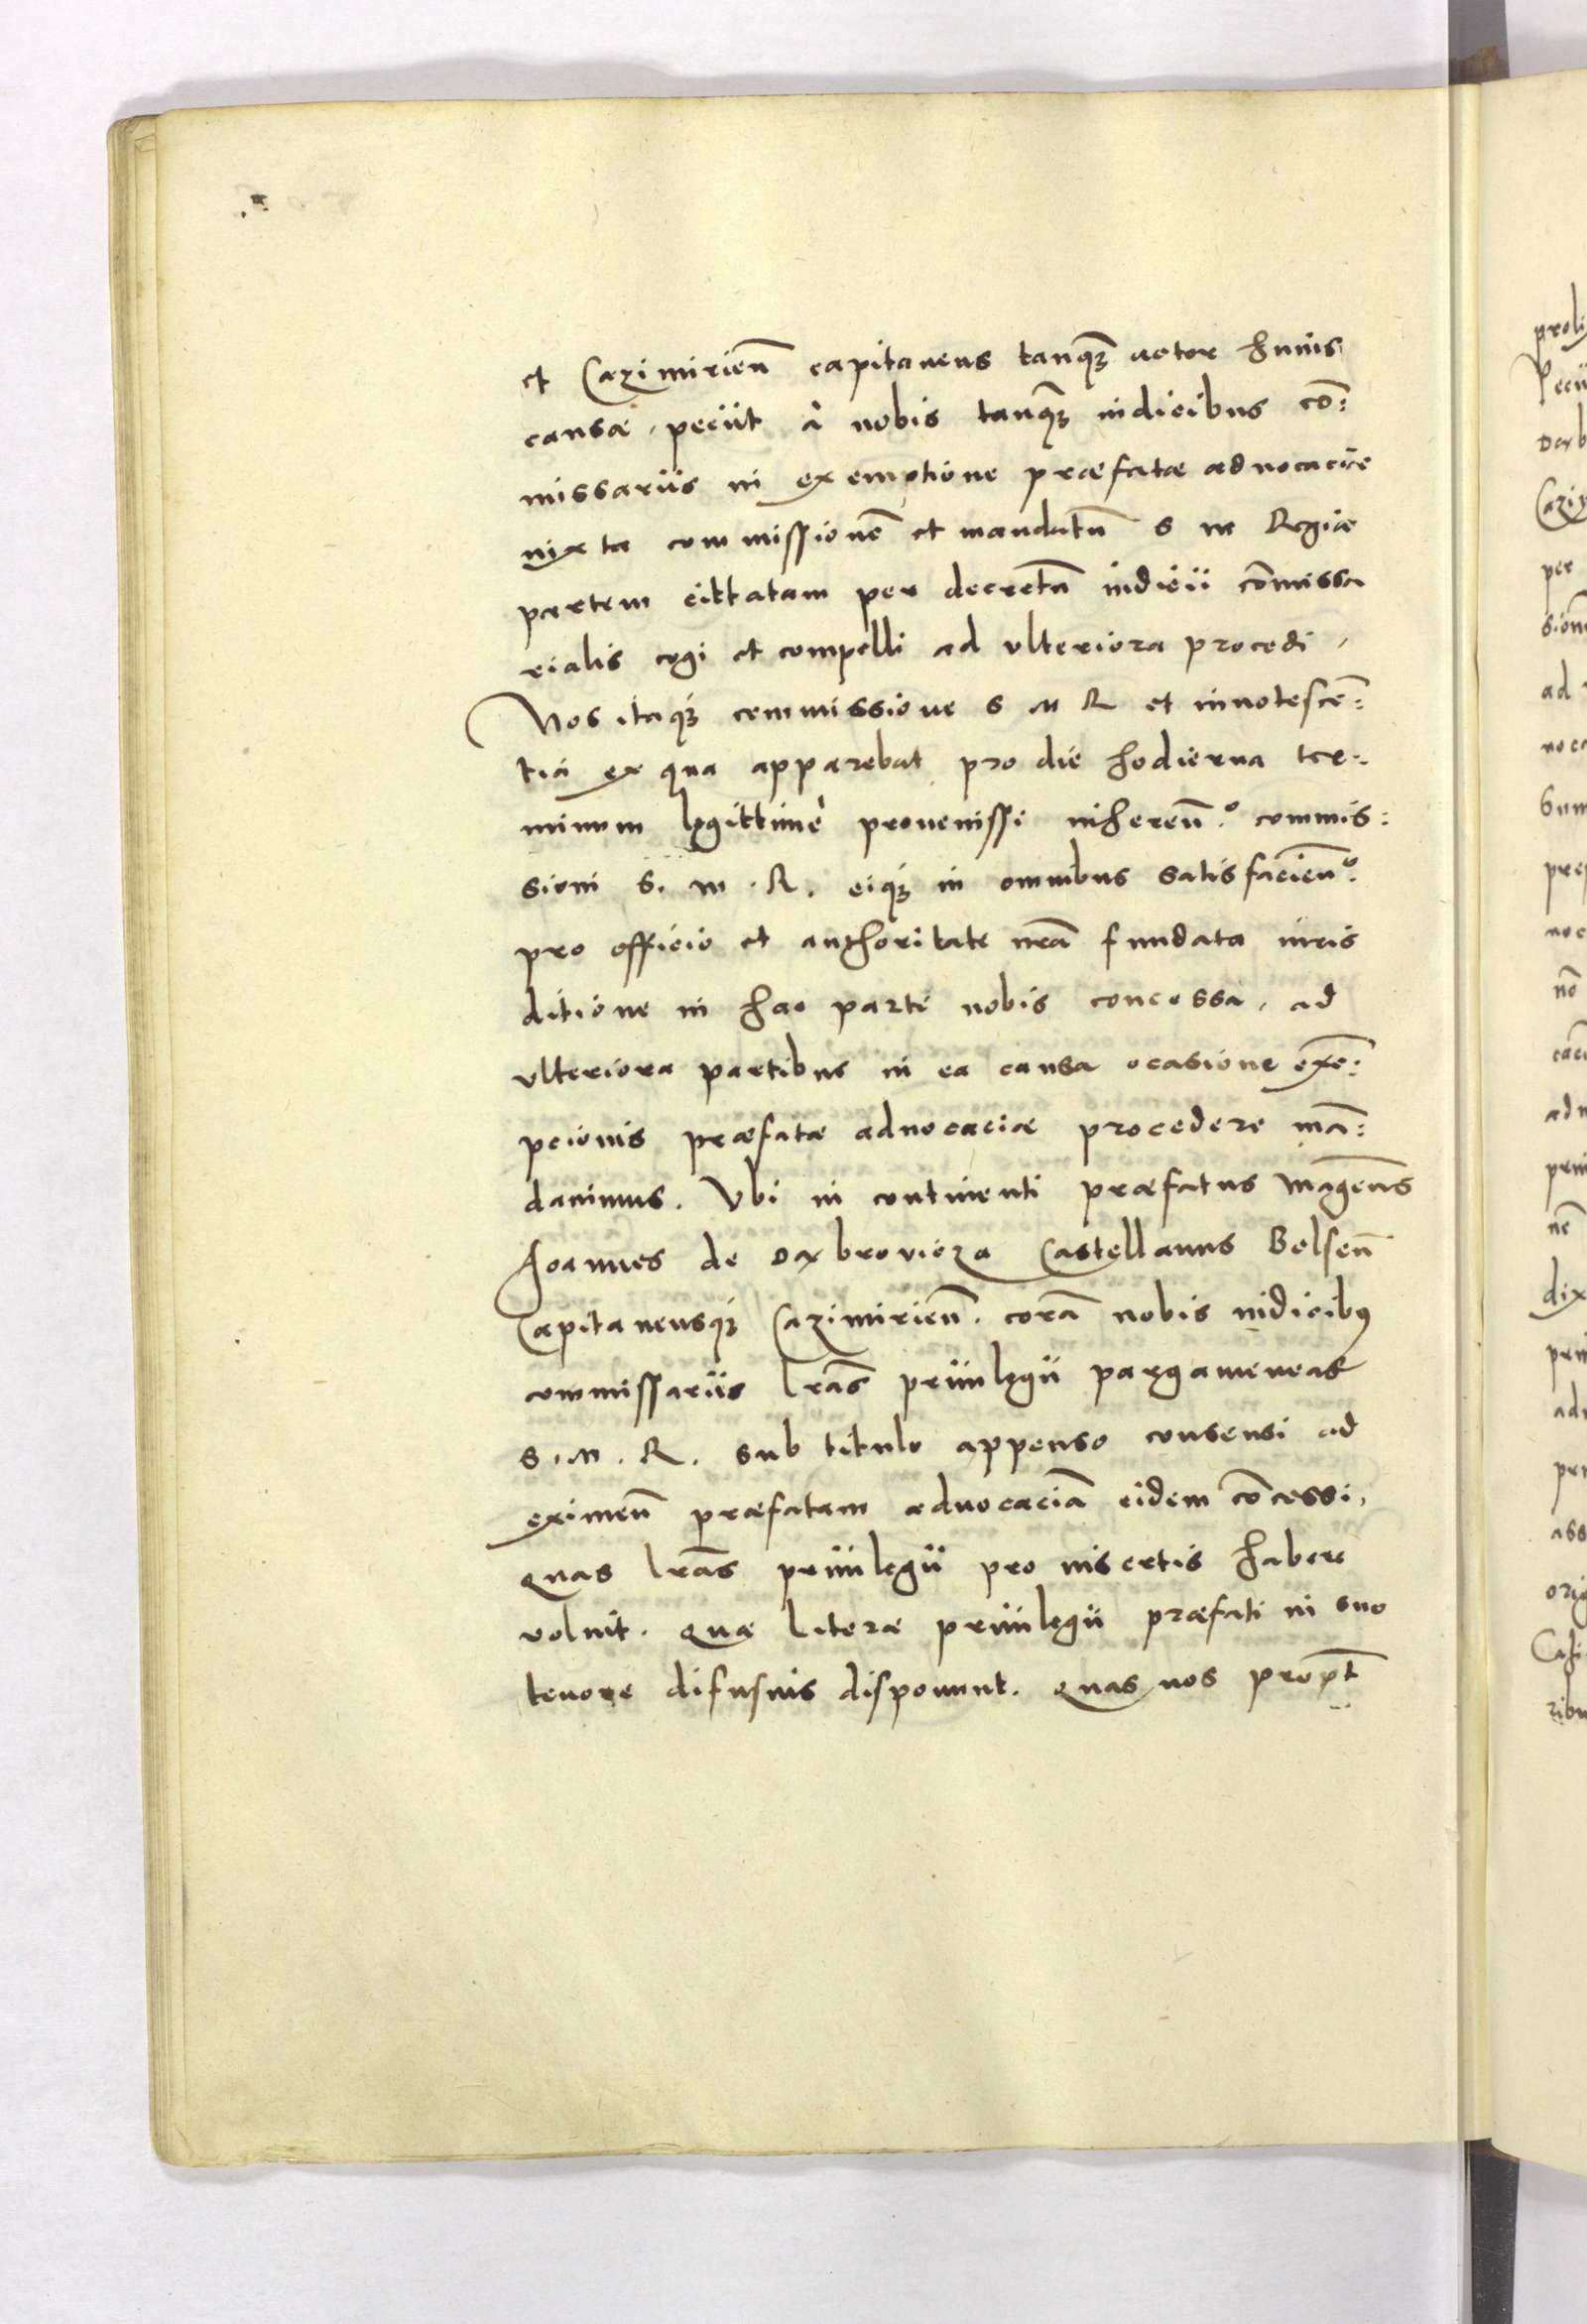 et Cazimirien̄ capitaneus tanq̃ȝ actor huius
causæ, peciit à nobis tanq̃ȝ iudicibus cō:
missariis in exemptione præfatæ aduocaciæ
iuxta commissionē et mandatū S M Regiæ
partem cittatam per decretū iudicii cōmissa
rialis cogi et compelli ad vlteriora procedi,
Nos itaqȝ commissione S M R et innotescē:
tia ex qua apparebat pro die hodierna ter:
minum legittimè prouenisse inheren̄º commis:
sioni S. M. R. eiqȝ in omnibus satisfacien̄º
pro officio et authoritate nrā fundata iuris
ditione in hac parte nobis concessa, ad
vlteriora partibus in ea causa ocasione exē:
pcionis præfatæ aduocaciæ procedere mā:
dauimus. Vbi in continenti præfatus Magcūs
Joannes de Daxbrovicza Castellanus Belsen̄
Capitaneusqȝ Cazimirien̄. corā nobis iudicibꝰ
commissariis lrās priuilegii pargameneas
S. M. R. sub titulo appenso consensi ad
eximen̄ præfatam aduocaciā eidem cōcessi,
quas lrās priuilegii pro insertis habere
voluit. Quæ literæ priuilegii præfati in suo
tenore difusius disponunt. Quas nos propt̄
proli
per
ad
no
dix
ass